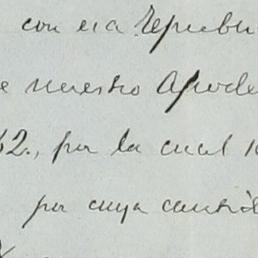 con esa Repúbl
e nuestro Apode
62., por la cual
por cuya cantid